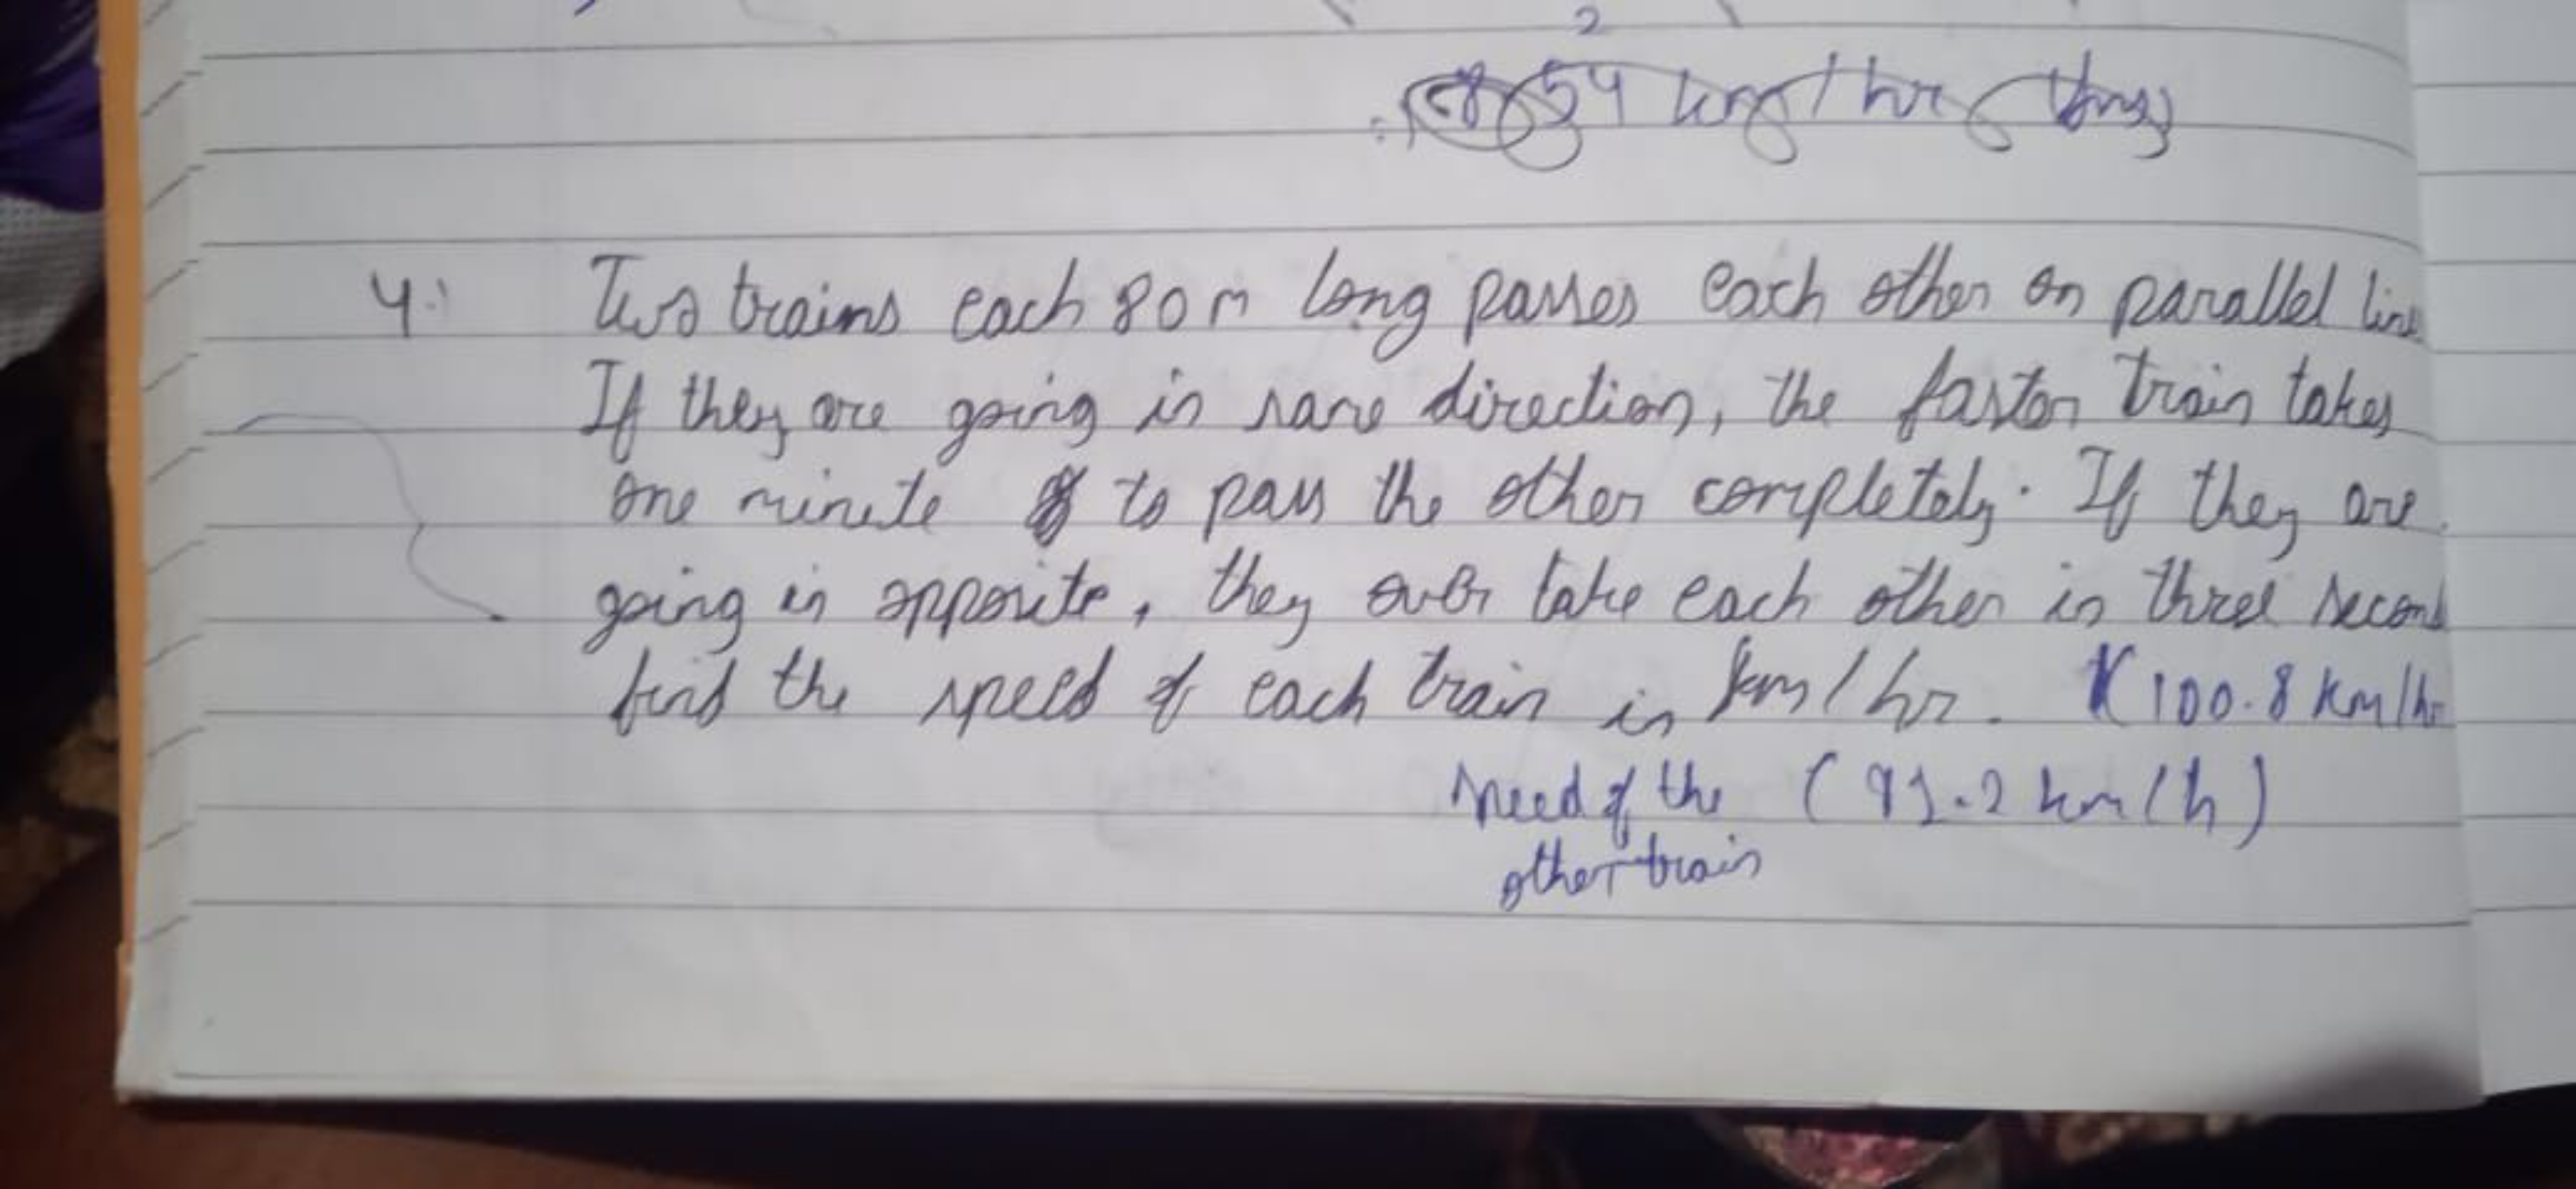 2
54 km/hr Ans
4. Two trains each 80 m long passes each other on parallel line
If they are going in same direction, the faster train takes
one minute to pass the other completely. If they are
going in opposite, they over take each other in three second
find the speed of each train in km/hr. (100.8 km/hr
speed of the (91.2 km/h)
other train